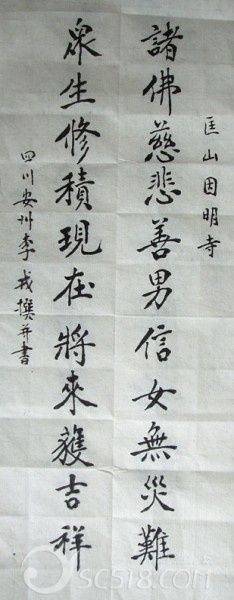 匡山因明寺
諸佛慈悲善男信女無災難
衆生修積現在將來獲吉祥
四川安州李戎撰并書
SC518.com